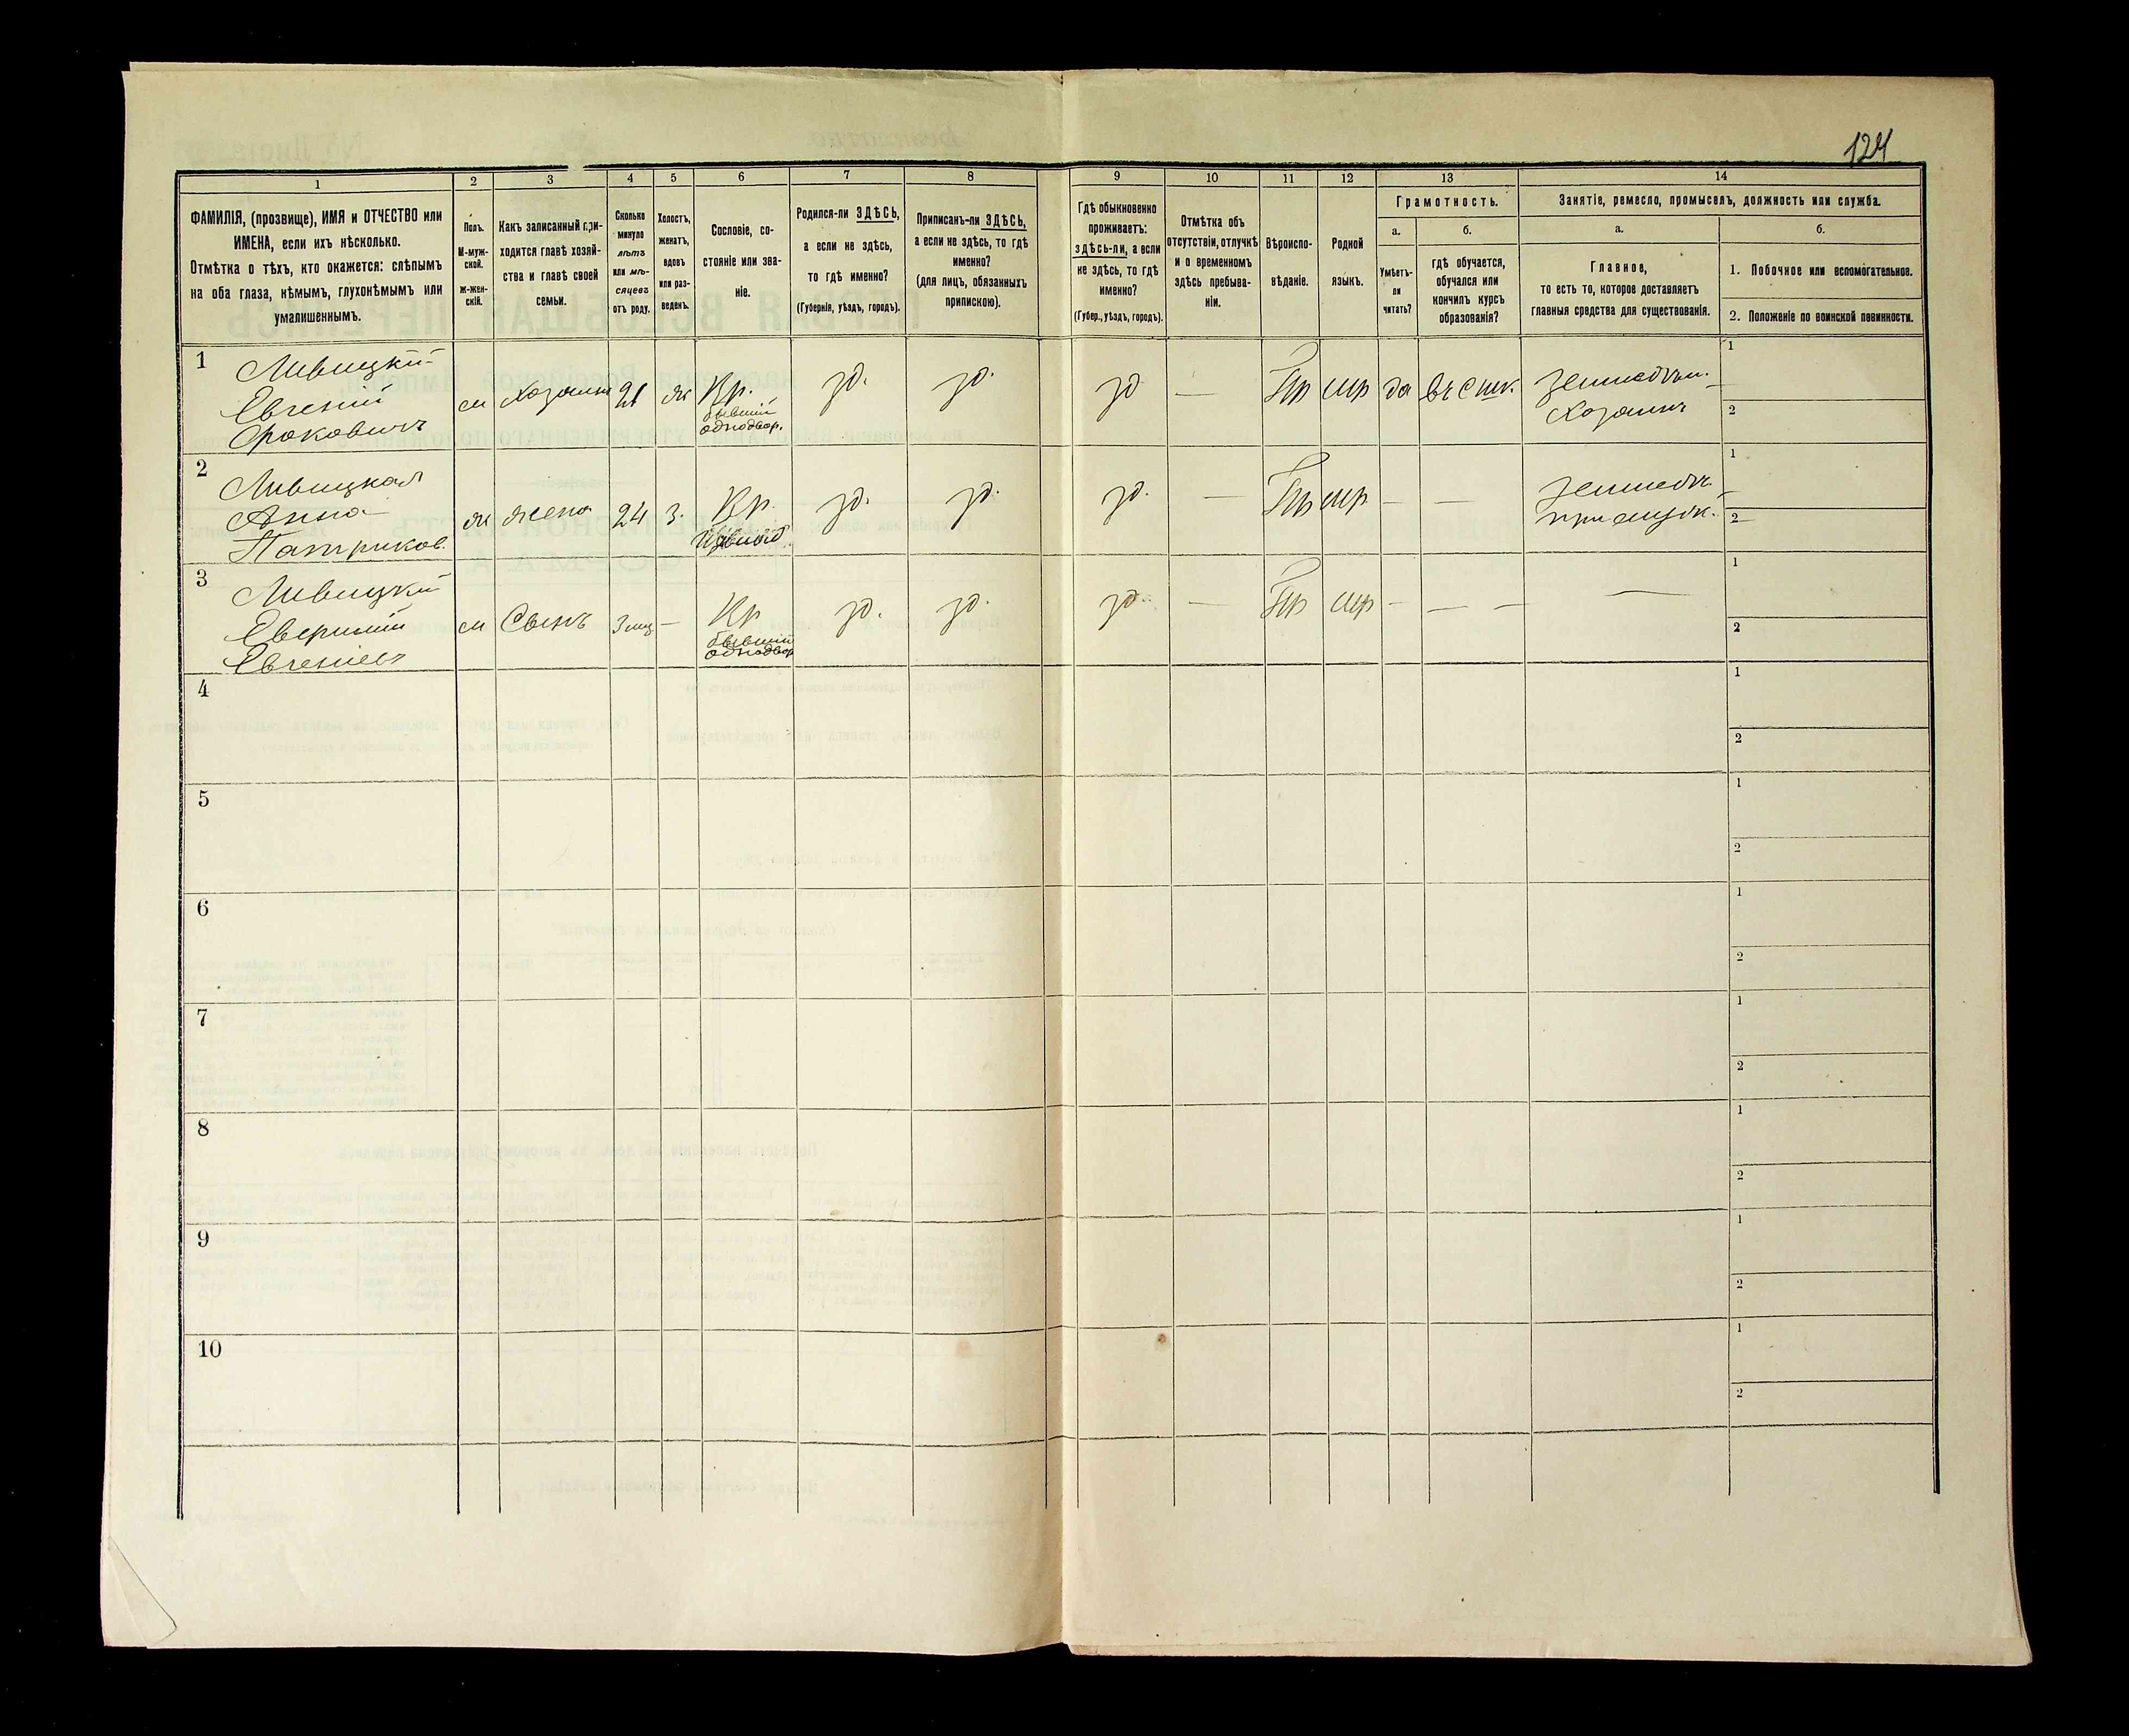 124
1
2
3
4
5
6
7
8
9
10
11
12
13
14
ФАМИЛІЯ, (прозвище), ИМЯ и ОТЧЕСТВО или
ИМЕНА, если ихъ нѣсколько.
Отмѣтка о тѣхъ, кто окажется: слѣпымъ
на оба глаза, нѣмымъ, глухонѣмымъ или
умалишеннымъ.
Полъ.
М-муж-
ской.
ж-жен-
скій.
Какъ записанный при-
ходится главѣ хозяй-
ства и главѣ своей
семьи.
Сколько
минуло
лѣтъ
или мѣ-
сяцевъ
отъ роду.
Холостъ,
женатъ,
вдовъ
или раз-
веденъ.
Сословіе, со-
стояніе или зва-
ніе.
Родился-ли ЗДѢСЬ,
а если не здѣсь,
то гдѣ именно?
(Губернія, уѣздъ, городъ).
Приписанъ-ли ЗДѢСЬ,
а если не здѣсь, то гдѣ
именно?
(для лицъ, обязанныхъ
припискою).
Гдѣ обыкновенно
проживаетъ:
здѣсь-ли, а если
не здѣсь, то гдѣ
именно?
(Губер., уѣздъ, городъ).
Отмѣтка объ
отсутствіи, отлучкѣ
и о временномъ
здѣсь пребыва-
ніи.
Вѣроиспо-
вѣданіе.
Родной
языкъ.
Грамотность.
а.
Умѣетъ-
ли
читать?
б.
гдѣ обучается,
обучался или
кончилъ курсъ
образованія?
Занятіе, ремесло, промыселъ, должность или служба.
а.
Главное,
то есть то, которое доставляетъ
главныя средства для существованія.
б.
1. Побочное или вспомогательное.
2. Положеніе по воинской повинности.
1
Ливицкій
Евгеній
м
Хозяинъ
21
ж
Кр.
бывшій
однодвор.
зд.
зд.
зд
—
Пр
мр
да
въ с шк.
земледѣл.
Хозяинъ
1
2
2
Ливицкая
Анна
Патриков.
ж
жена
24
з.
Кр.
зд.
зд.
зд.
—
Пр
мр
—
—
земледѣл.
при мужѣ.
1
2
3
Ливицкій
Евгеніевъ
м
Сынъ
3 мц
—
Кр
бывшій
однодвор
зд.
зд.
зд.
—
Пр
мр
—
— —
—
1
2
4
1
2
5
1
2
6
1
2
7
1
2
8
1
2
9
1
2
10
1
2